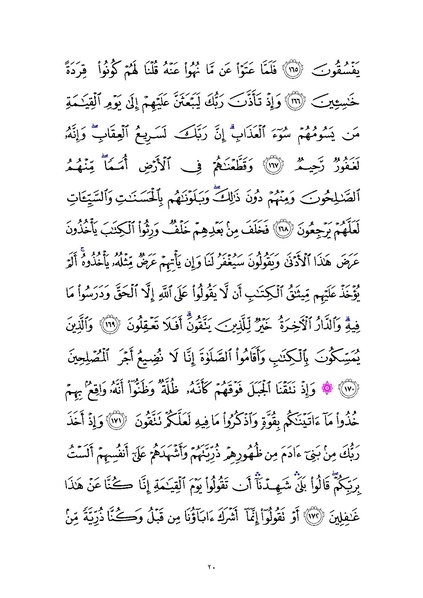 يَفْسُقُونَ ١٦٥ فَلَمَّا عَتَوْا۟ عَن مَّا نُهُوا۟ عَنْهُ قُلْنَا لَهُمْ كُونُوا۟ قِرَدَةً
خَٰسِـِٔينَ ١٦٦ وَإِذْ تَأَذَّنَ رَبُّكَ لَيَبْعَثَنَّ عَلَيْهِمْ إِلَىٰ يَوْمِ ٱلْقِيَٰمَةِ
مَن يَسُومُهُمْ سُوٓءَ ٱلْعَذَابِ ۗ إِنَّ رَبَّكَ لَسَرِيعُ ٱلْعِقَابِ ۖ وَإِنَّهُۥ
لَغَفُورٌ رَّحِيمٌ ١٦٧ وَقَطَّعْنَٰهُمْ فِى ٱلْأَرْضِ أُمَمًا ۖ مِّنْهُمُ
ٱلصَّٰلِحُونَ وَمِنْهُمْ دُونَ ذَٰلِكَ ۖ وَبَلَوْنَٰهُم بِٱلْحَسَنَٰتِ وَٱلسَّيِّـَٔاتِ
لَعَلَّهُمْ يَرْجِعُونَ ١٦٨ فَخَلَفَ مِنۢ بَعْدِهِمْ خَلْفٌ وَرِثُوا۟ ٱلْكِتَٰبَ يَأْخُذُونَ
عَرَضَ هَٰذَا ٱلْأَدْنَىٰ وَيَقُولُونَ سَيُغْفَرُ لَنَا وَإِن يَأْتِهِمْ عَرَضٌ مِّثْلُهُۥ يَأْخُذُوهُ ۚ أَلَمْ
يُؤْخَذْ عَلَيْهِم مِّيثَٰقُ ٱلْكِتَٰبِ أَن لَّا يَقُولُوا۟ عَلَى ٱللَّهِ إِلَّا ٱلْحَقَّ وَدَرَسُوا۟ مَا
فِيهِ ۗ وَٱلدَّارُ ٱلْءَاخِرَةُ خَيْرٌ لِّلَّذِينَ يَتَّقُونَ ۗ أَفَلَا تَعْقِلُونَ ١٦٩ وَٱلَّذِينَ
يُمَسِّكُونَ بِٱلْكِتَٰبِ وَأَقَامُوا۟ ٱلصَّلَوٰةَ إِنَّا لَا نُضِيعُ أَجْرَ ٱلْمُصْلِحِينَ
١٧٠ ۞ وَإِذْ نَتَقْنَا ٱلْجَبَلَ فَوْقَهُمْ كَأَنَّهُۥ ظُلَّةٌ وَظَنُّوٓا۟ أَنَّهُۥ وَاقِعٌۢ بِهِمْ
خُذُوا۟ مَآ ءَاتَيْنَٰكُم بِقُوَّةٍ وَٱذْكُرُوا۟ مَا فِيهِ لَعَلَّكُمْ تَتَّقُونَ ١٧١ وَإِذْ أَخَذَ
رَبُّكَ مِنۢ بَنِىٓ ءَادَمَ مِن ظُهُورِهِمْ ذُرِّيَّتَهُمْ وَأَشْهَدَهُمْ عَلَىٰٓ أَنفُسِهِمْ أَلَسْتُ
بِرَبِّكُمْ ۖ قَالُوا۟ بَلَىٰ ۛ شَهِدْنَآ ۛ أَن تَقُولُوا۟ يَوْمَ ٱلْقِيَٰمَةِ إِنَّا كُنَّا عَنْ هَٰذَا
غَٰفِلِينَ ١٧٢ أَوْ تَقُولُوٓا۟ إِنَّمَآ أَشْرَكَ ءَابَآؤُنَا مِن قَبْلُ وَكُنَّا ذُرِّيَّةً مِّنۢ
٢٠